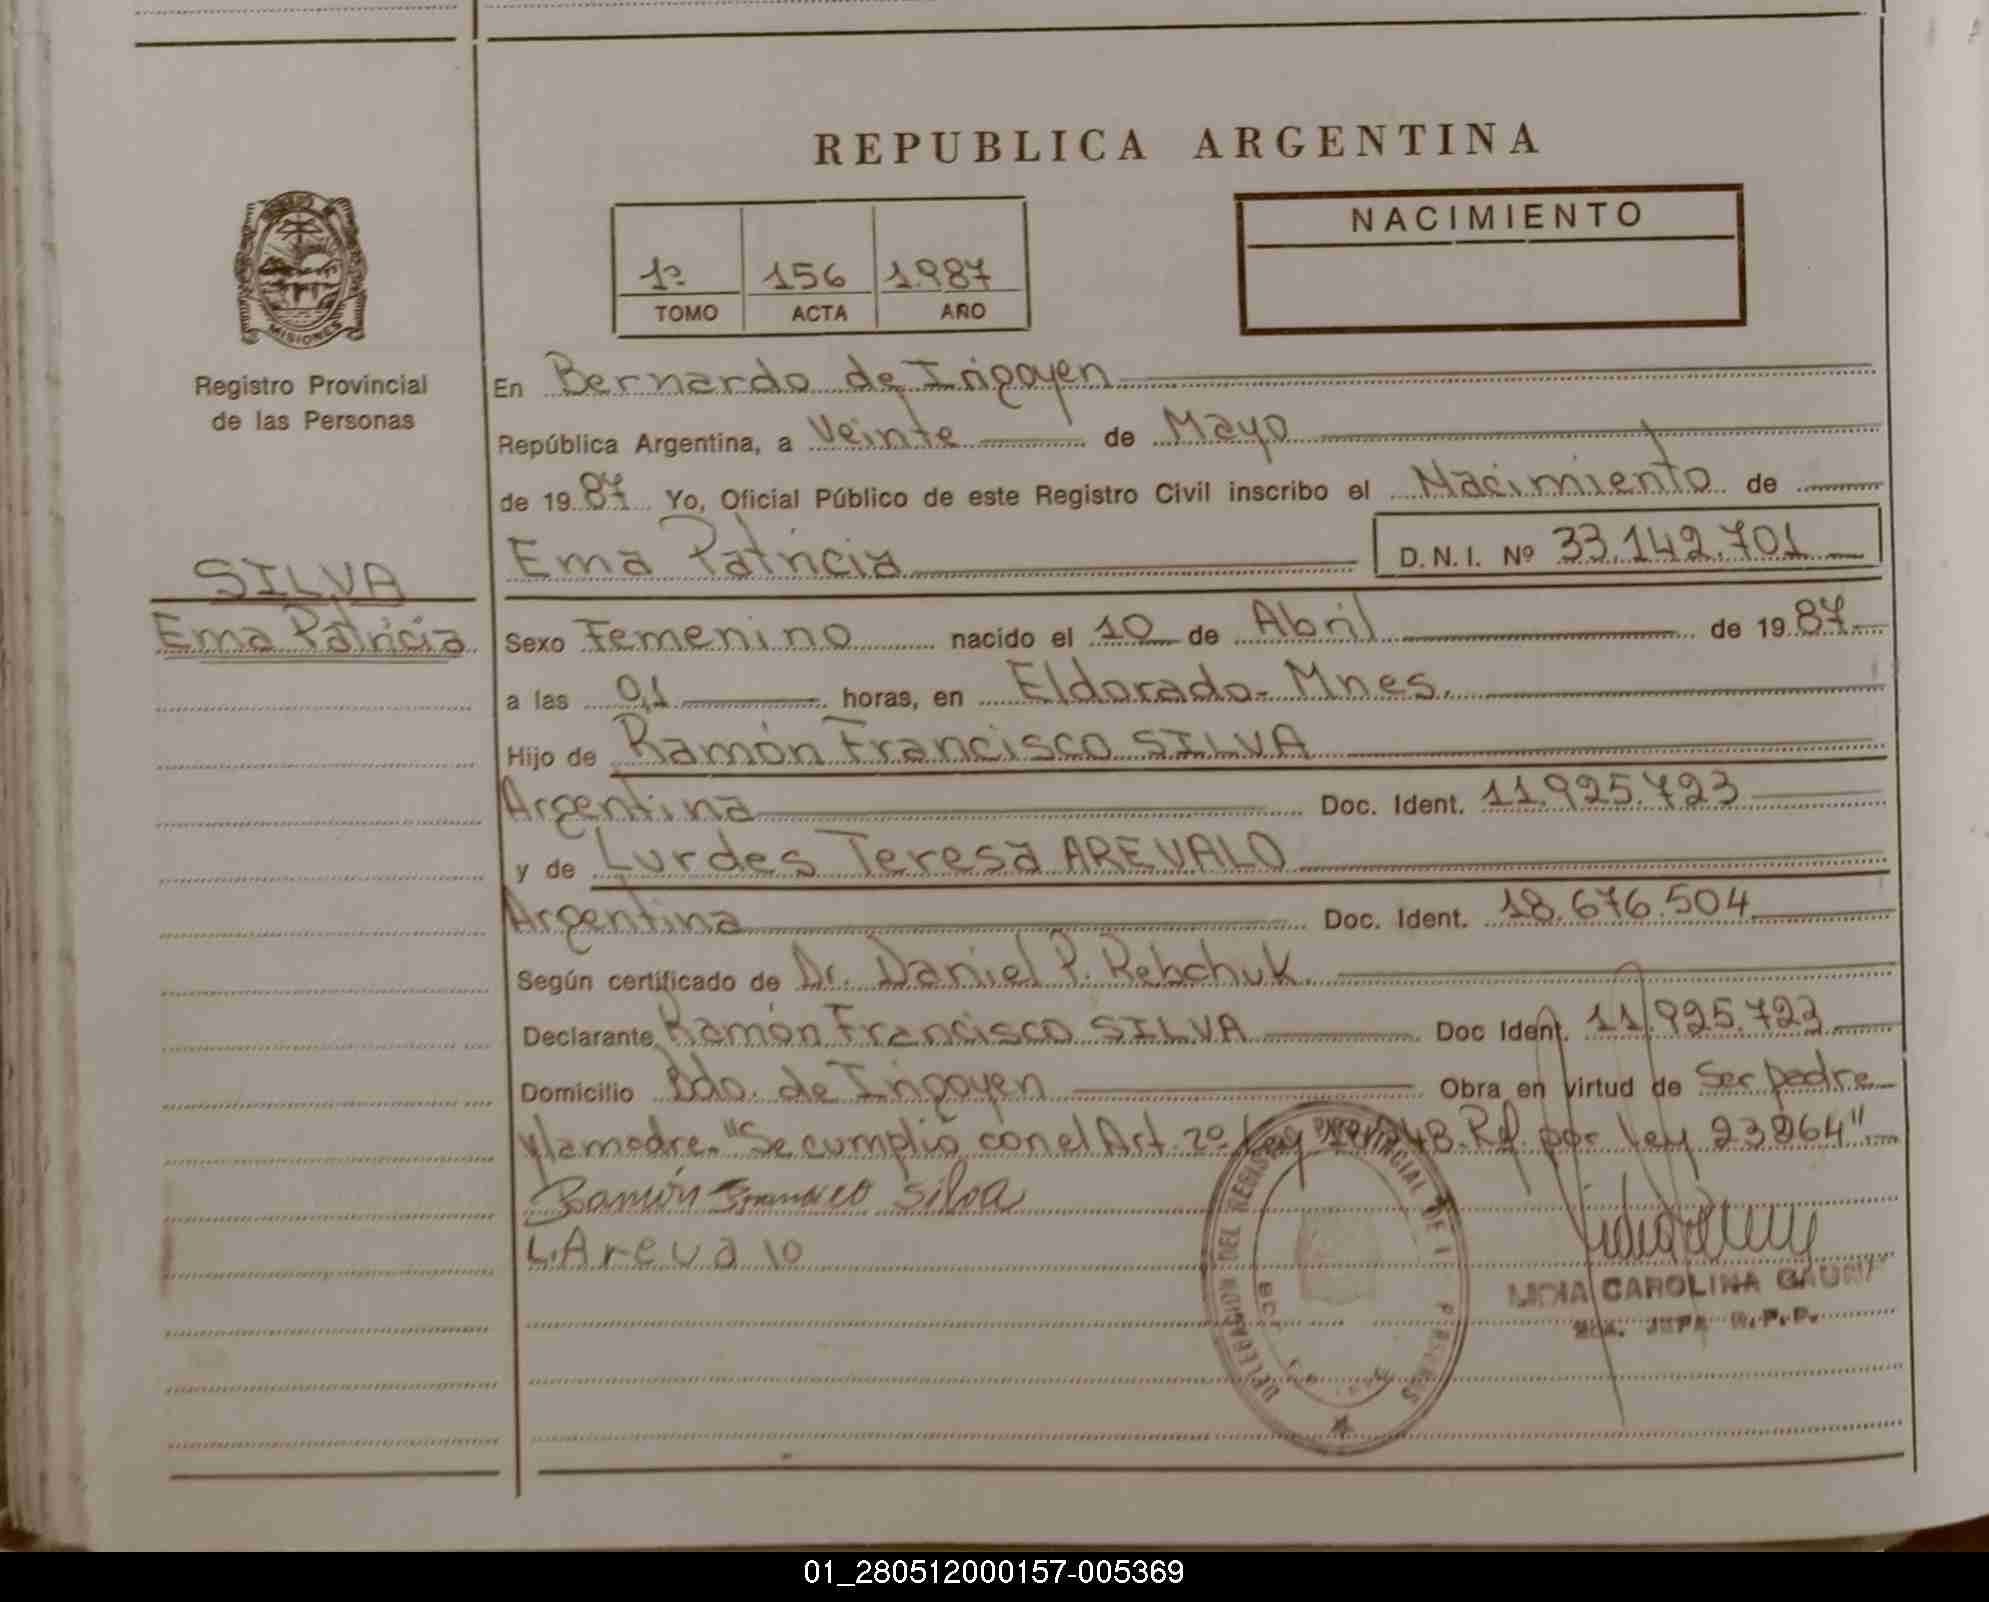 REPUBLICA ARGENTINA
NACIMIENTO
1º 156 1.987
TOMO ACTA AÑO
MISIONES
Registro Provincial
de las Personas
En Bernardo de Irigoyen
República Argentina, a Veinte de Mayo
de 1987 Yo, Oficial Público de este Registro Civil inscribo el Nacimiento de
SILVA
Ema Patricia
Ema Patricia D.N.I. Nº 33.142.701
Sexo Femenino nacido el 10 de Abril de 1987
a las 01 horas, en Eldorado - Mnes.
Hijo de Ramón Francisco SILVA
Argentina Doc. Ident. 11.925.723
y de Lurdes Teresa AREVALO
Argentina Doc. Ident. 18.676.504
Según certificado de Dr. Daniel P. Rebchuk
Declarante Ramón Francisco SILVA Doc Ident. 11.925.723
Domicilio Bdo. de Irigoyen Obra en virtud de Ser padre
y la madre. "Se cumplió con el Art. 2º Ley Ref. por Ley 23264"
Ramón Francisco Silva
L. Arevalo
DELEGACION DEL REGISTRO PROVINCIAL DE
LIDIA CAROLINA
R.P.P.
01_280512000157-005369